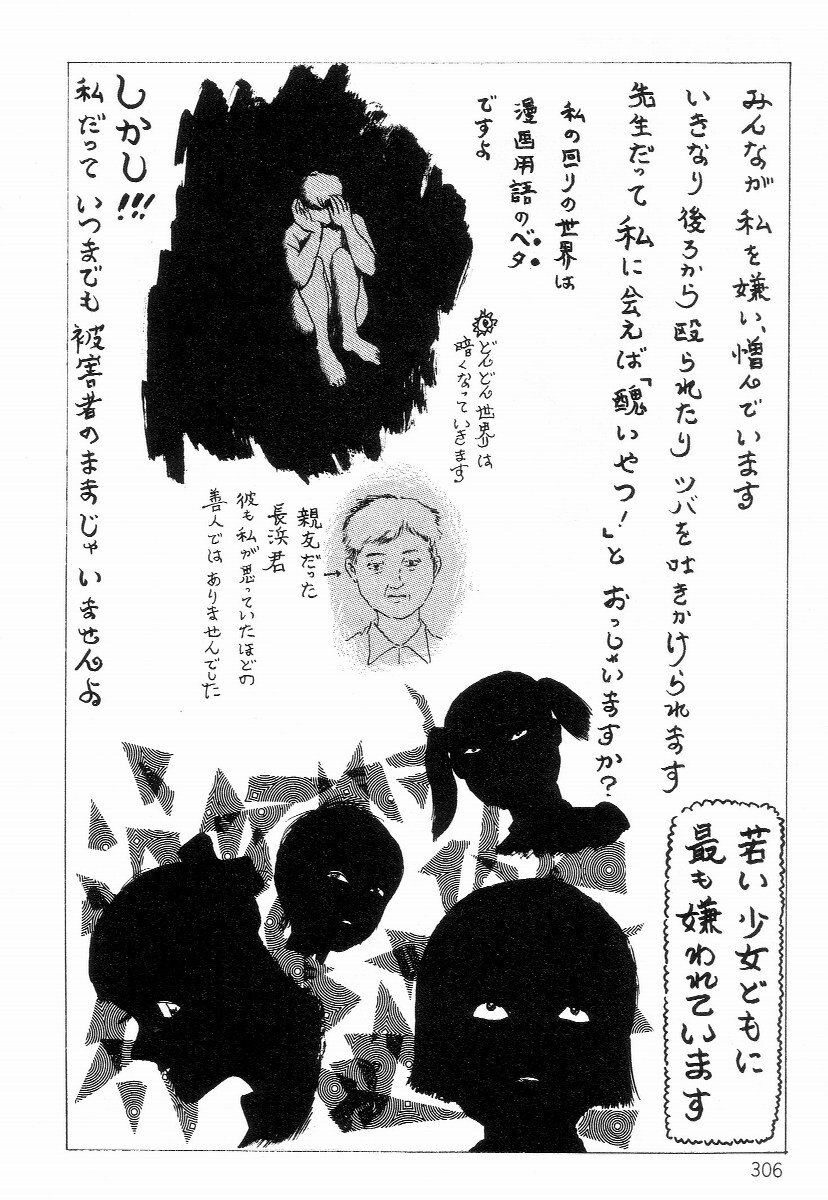 みんなが私を嫌い、憎んでいます
いきなり後ろから殴られたりツバを吐きかけられます
先生だって私に会えば「醜いやつ!」とおっしゃいますか?
私の回りの世界は
漫画用語のベタ
ですよ
どんどん世界は
暗くなっていきます
しかし!!!
私だっていつまでも被害者のままじゃいませんよ
親友だった
長浜君
彼も私が思っていたほどの
善人ではありませんでした
若い少女どもに
最も嫌われています
306